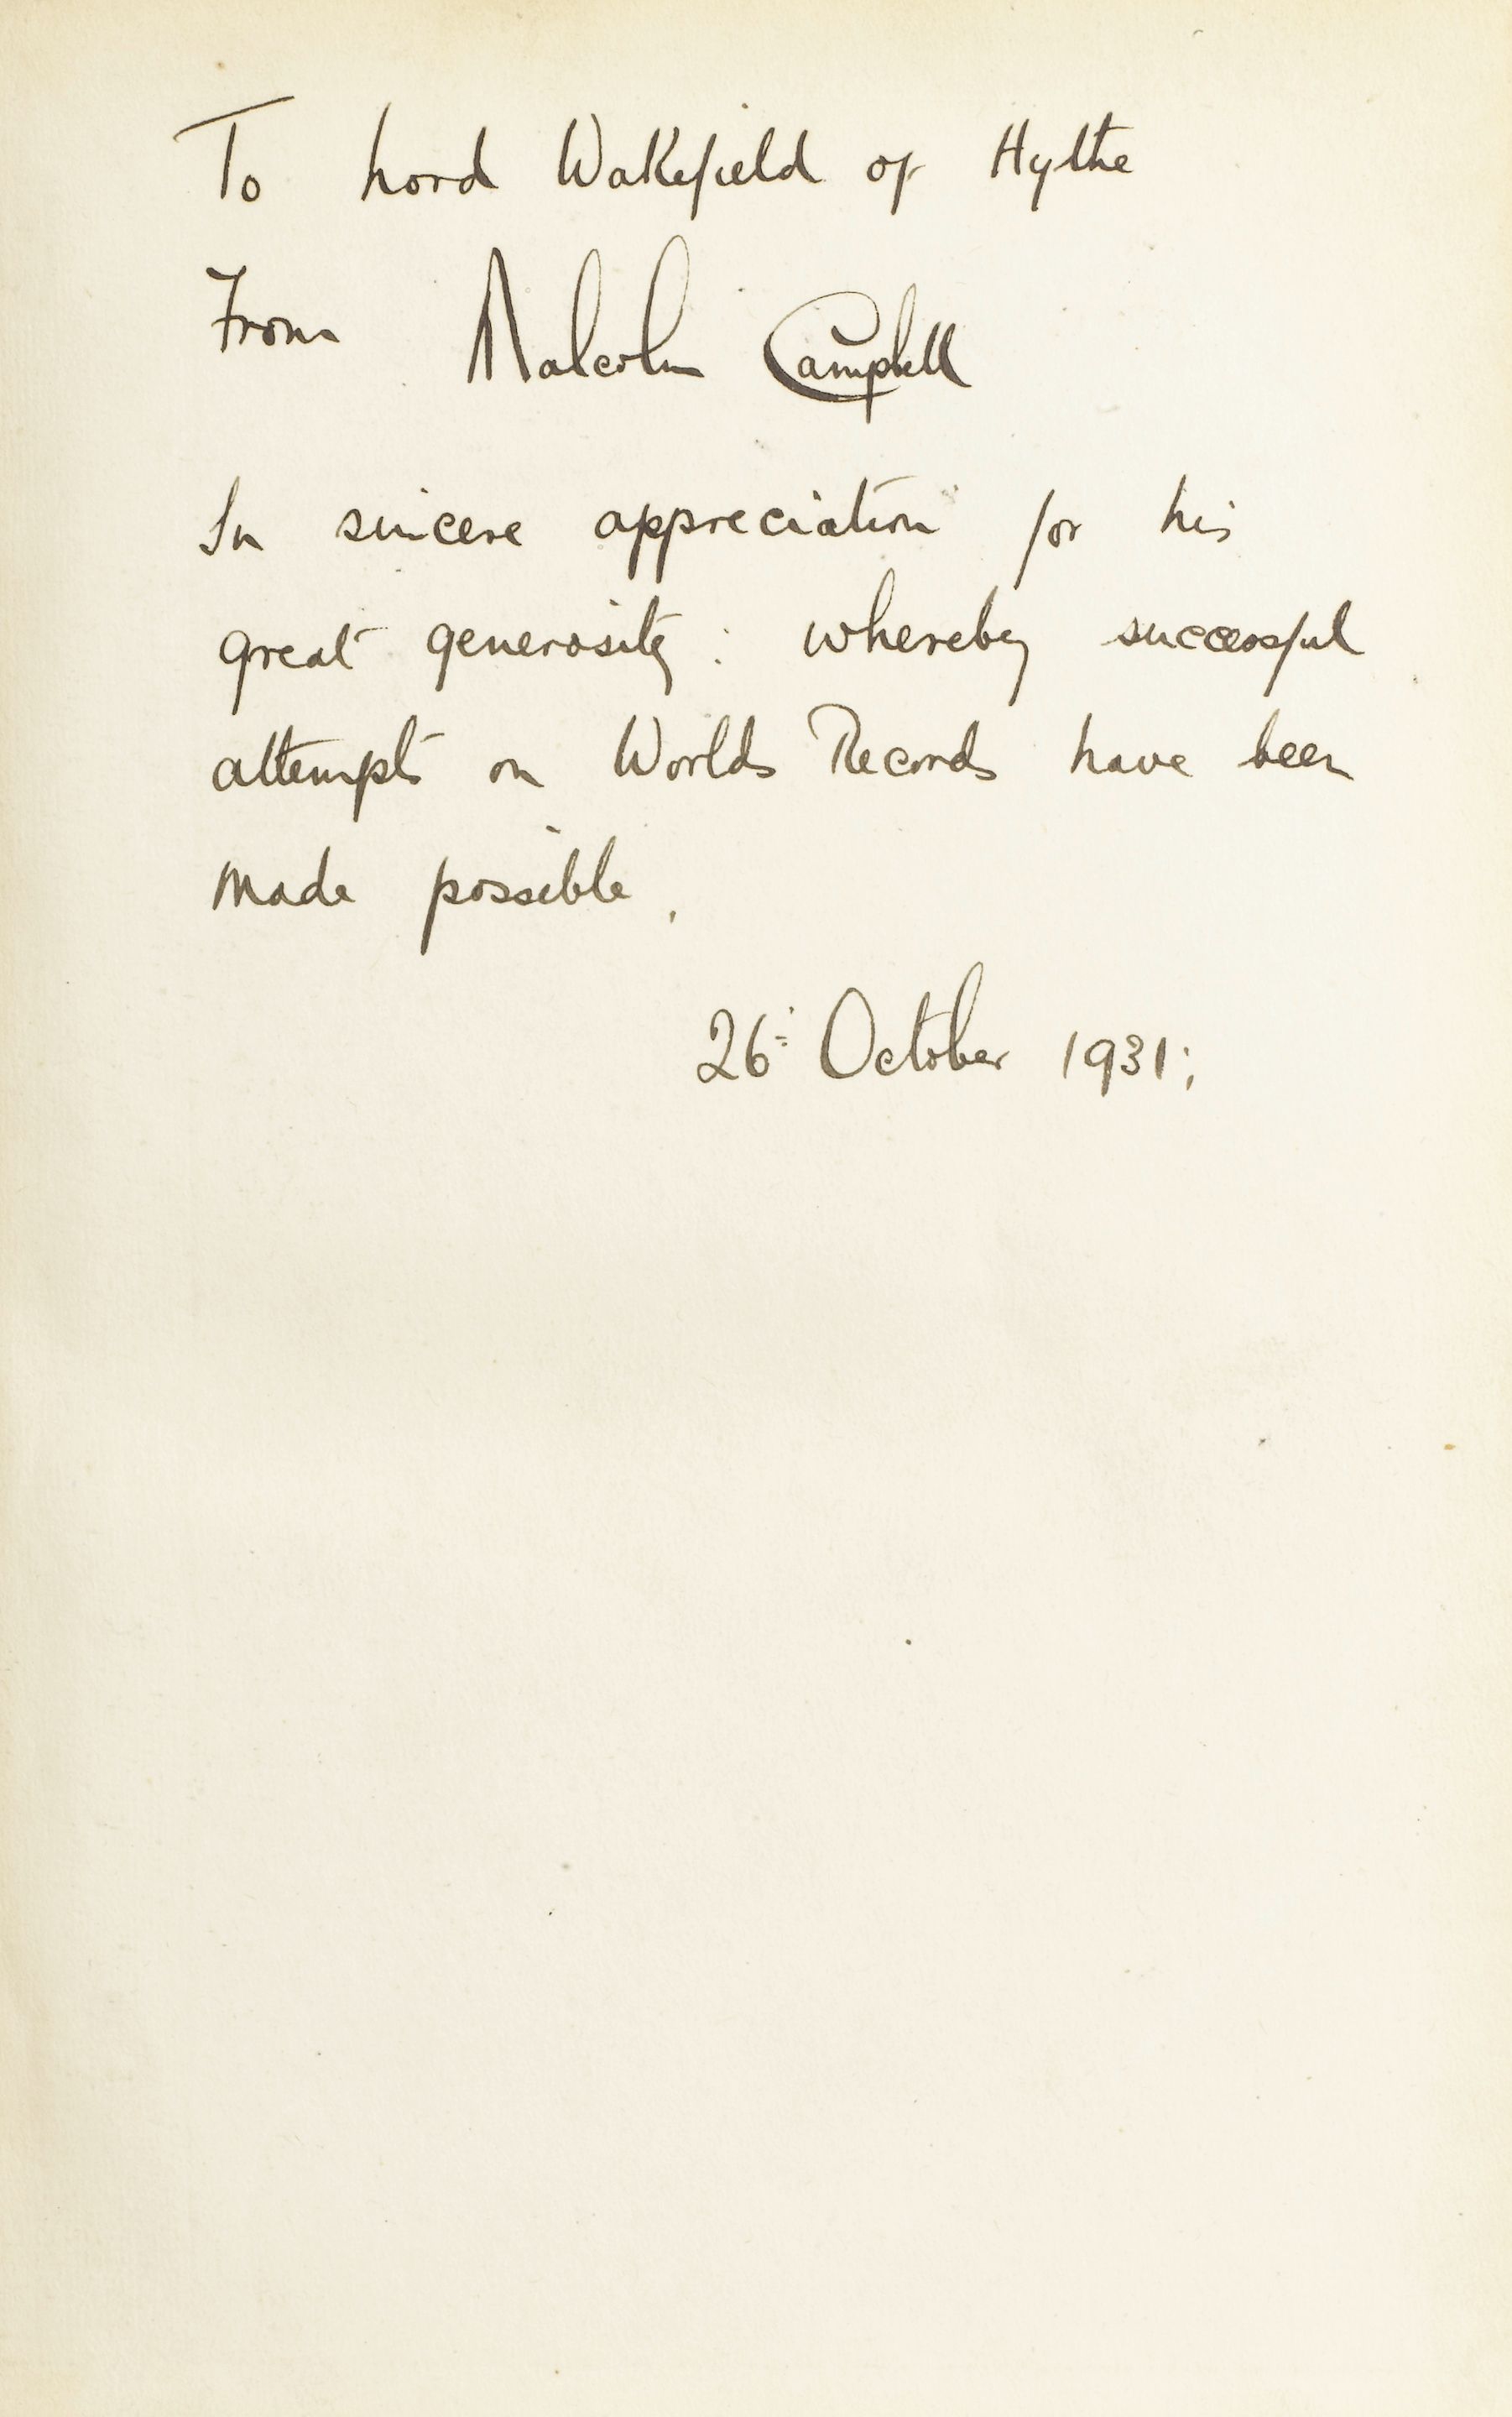 To Lord Wakefield of Hythe
From Malcolm Campbell
In sincere appreciation for his
great generosity : whereby successful
attempts on Worlds Records have been
made possible.
26: October 1931;